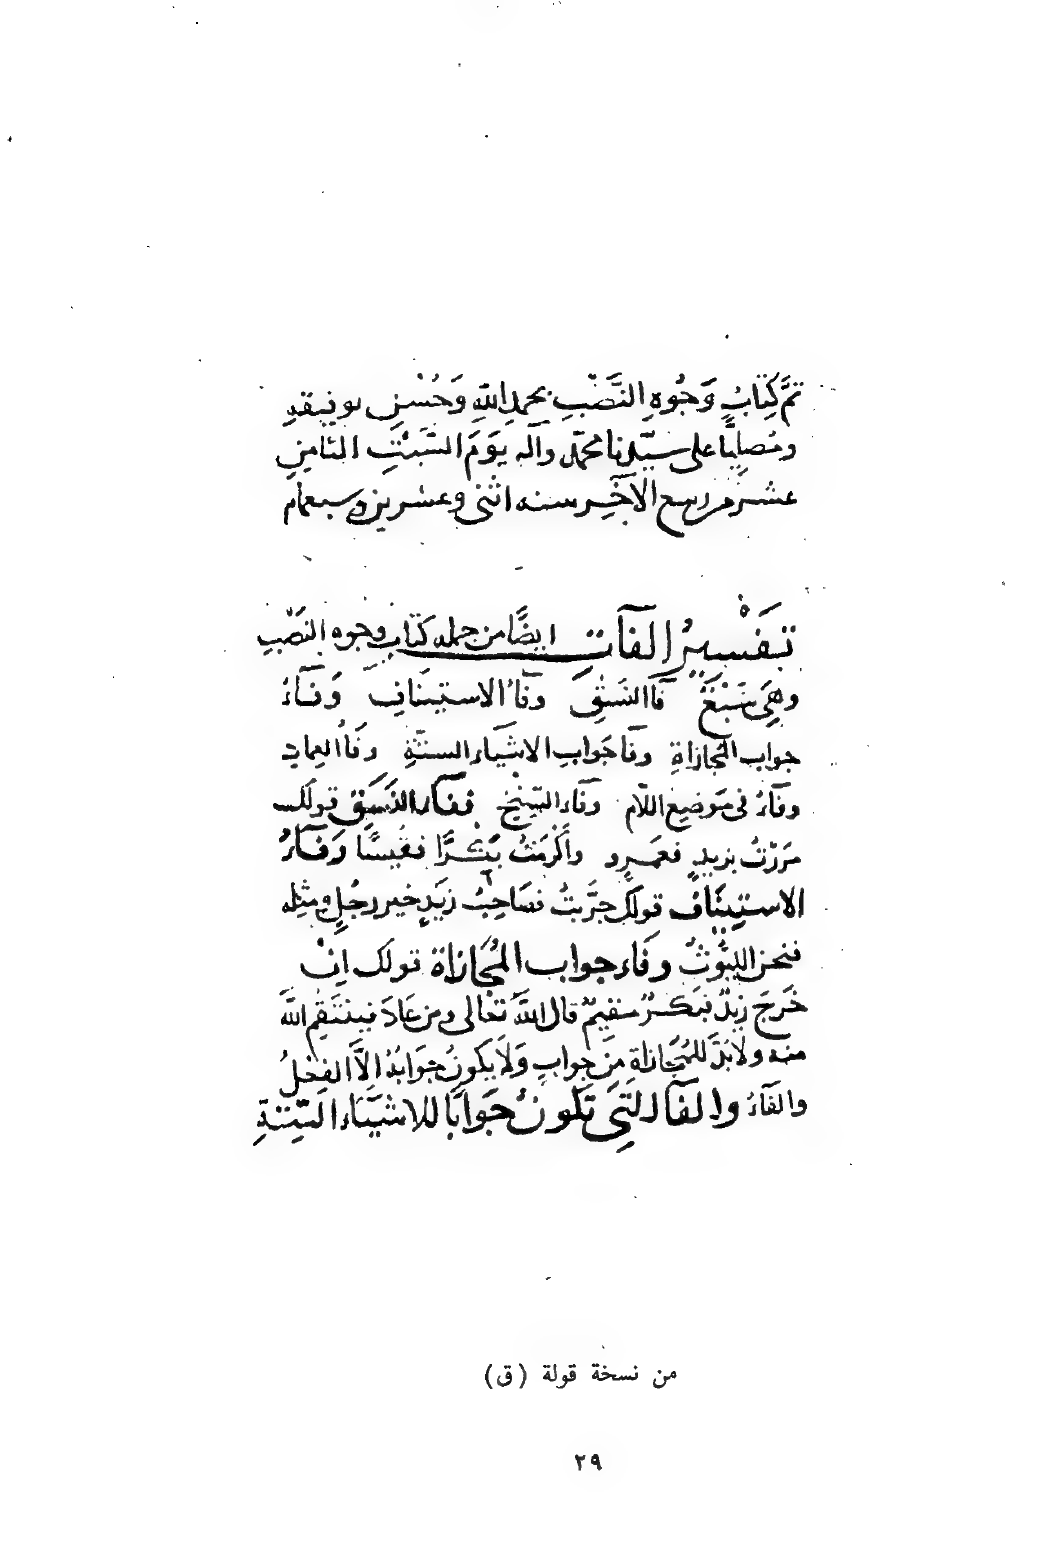 تمَّ كِتَابُ وَجُوهِ النَّصْبِ بحمدِ اللّهِ وَحُسْنِ توفيقِهِ
ومُصليًا على سيّدنا محمّد وآله يَوَمَ السَّبْتِ الثامِنِ
عشر من ربيع الآخِر سنه اثنى وعشرين وسبعمائه
تَفْسِيرُ الفَآتِ ايضًا من جمله كتاب وجوه النَصْبِ
وهِيَ سَبْعٌ فآ النَسَقِ وفآءُ الاستِينافِ وَفَآءُ
جواب المُجازاةِ وفآ جَوابِ الاشيآء الستّةِ وفَآءُ العِمادِ
وفآءٌ فى مَوضِعِ اللّام وفَآء السِّنْخِ ففآء النَسَقِ قولك
مَرَرْتُ بزيدٍ فعمرٍو وأكْرَمْتُ بَكْرًا فقَيْسًا وَفَآءُ
الاستِينَافِ قولك جرَّبتُ فصَاحِبُ زَيدٍ خير رجُلٍ ومثله
فنحن اللُيُوثُ وفَآء جواب المُجَازاة قولك اِنْ
خَرَجَ زيدٌ فبَكرٌ مقيمٌ قال اللّهُ تعَالى ومن عَادَ فيَنتَقِمُ اللّهُ
منه ولا بُدَّ للمُجَازاةِ مِنْ جوابٍ وَلَا يكونُ جَوَابُهُ الاَّ الفِعْلُ
والفَآءُ والفآء التى تكونُ جَوابًا للاشيَآء السِّتَّةِ
من نسخة قولة (ق)
٢٩